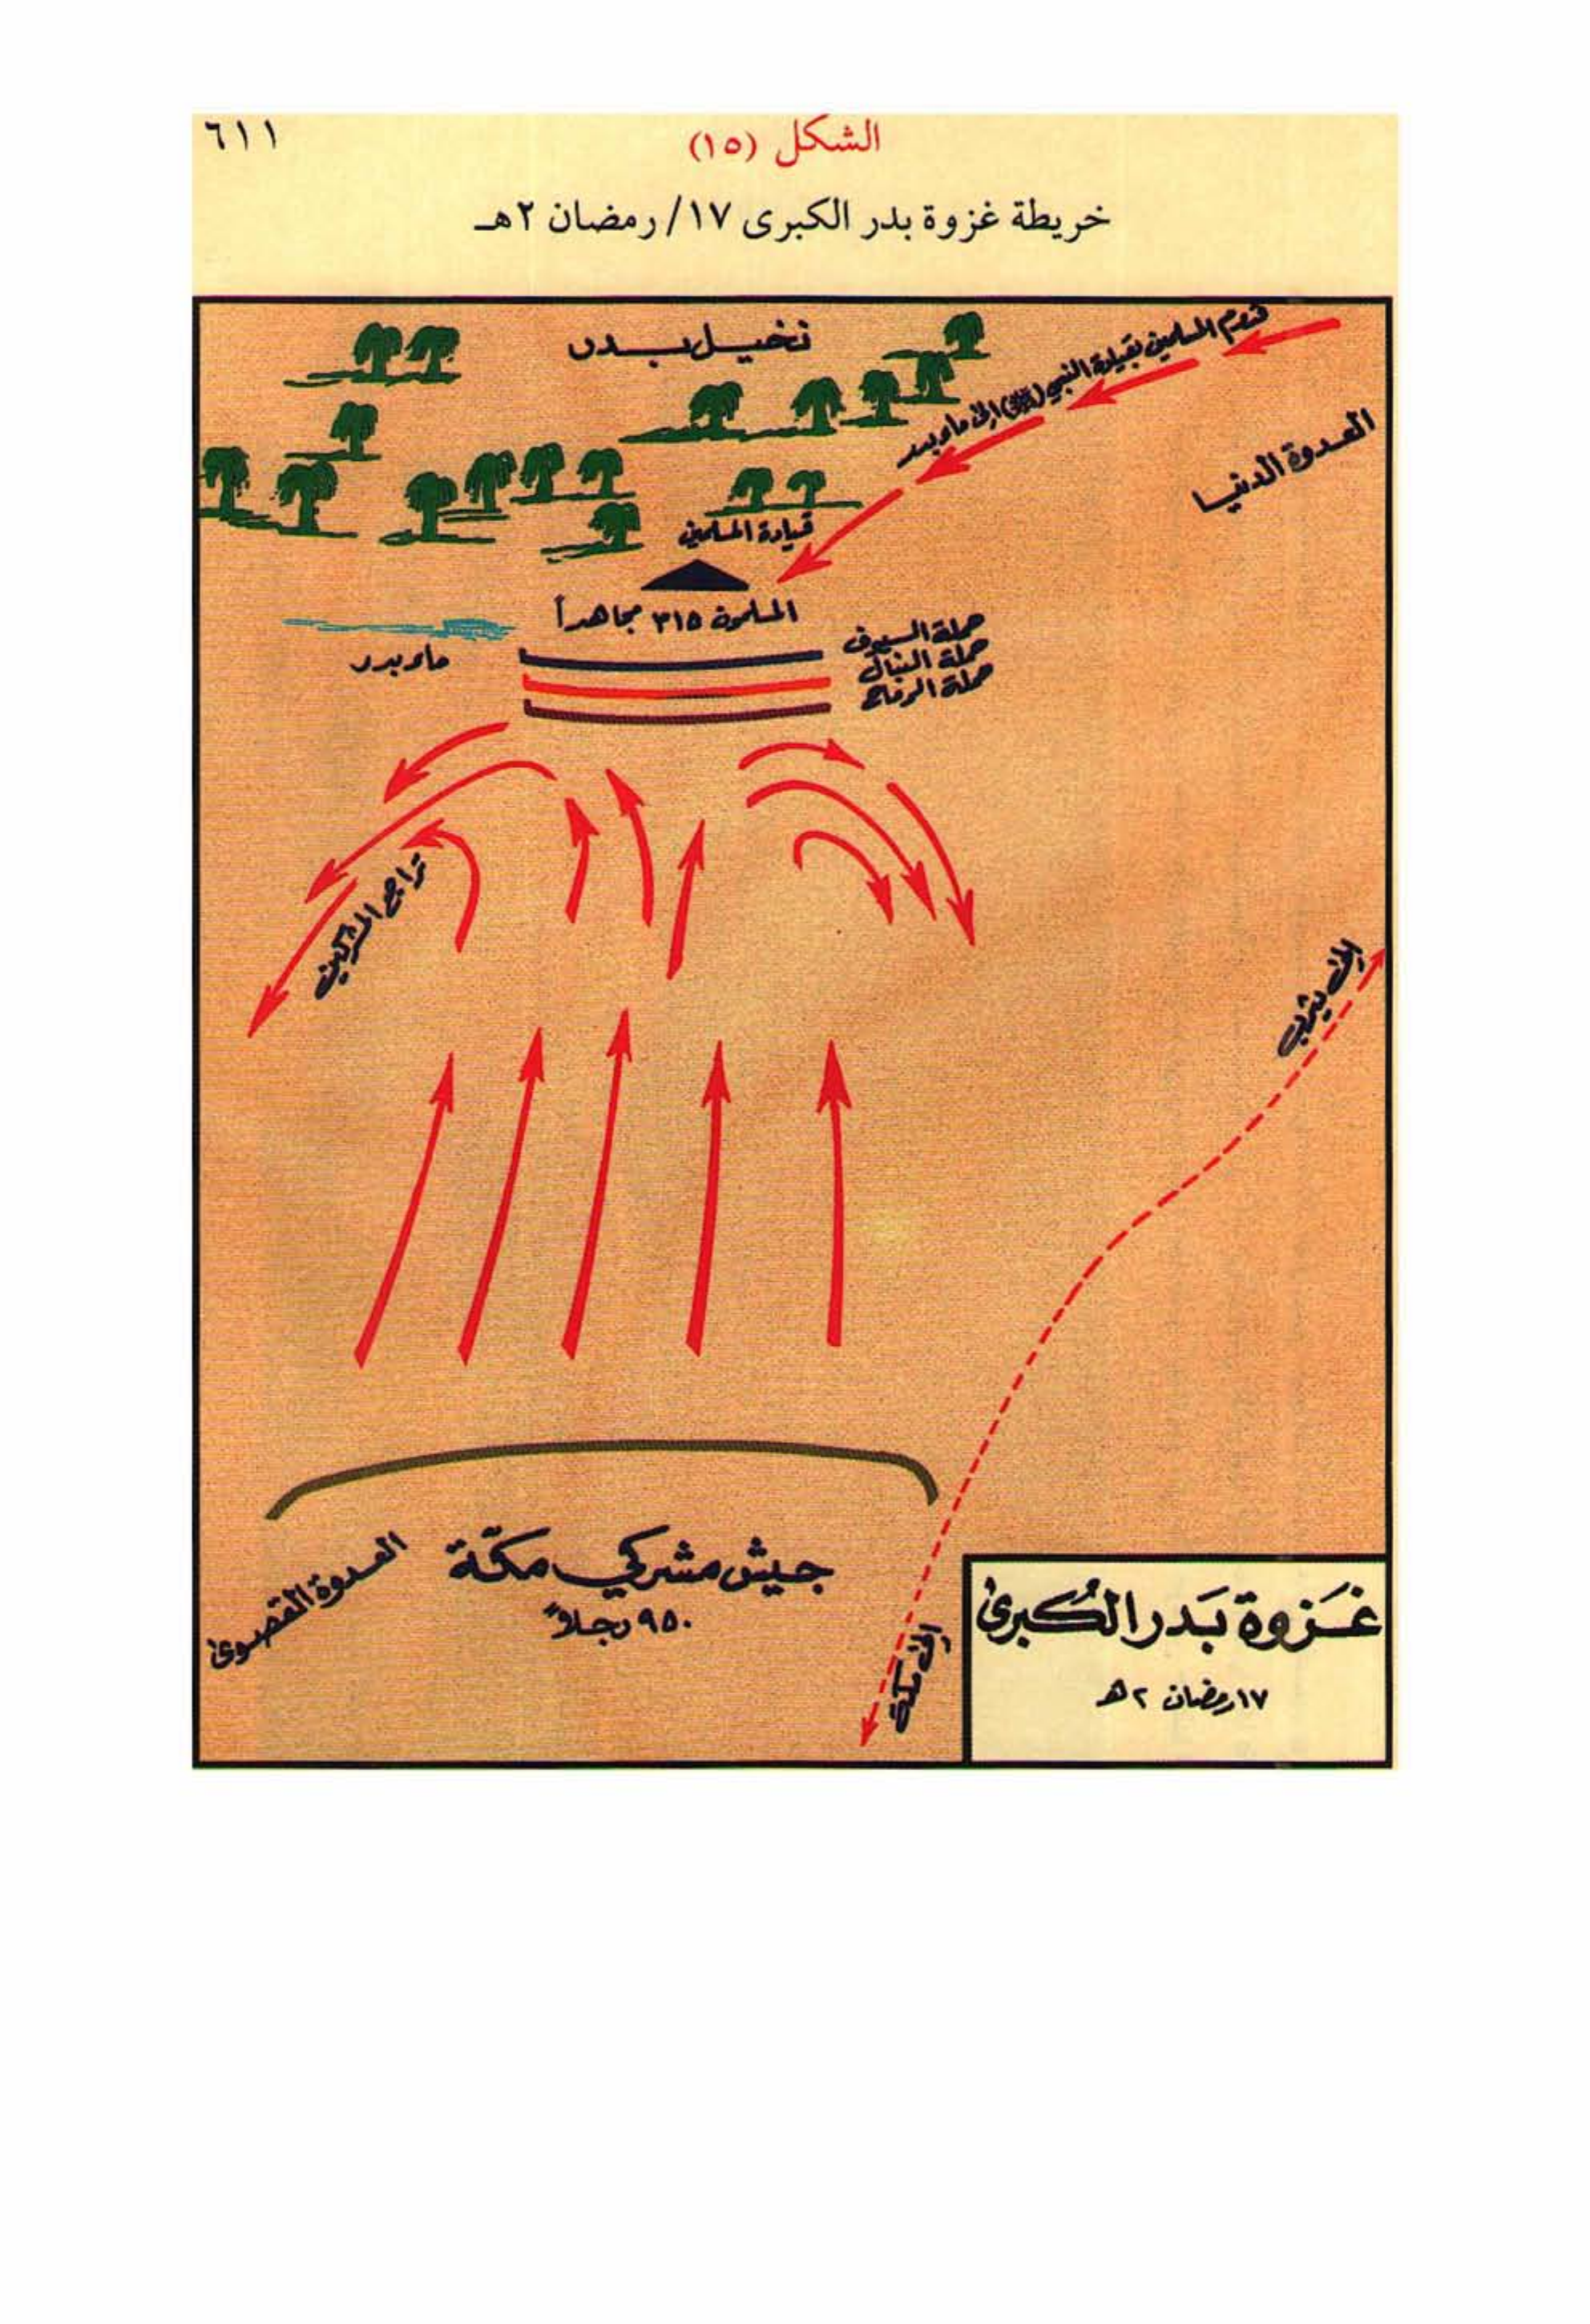 ٦١١
الشكل (١٥)
خريطة غزوة بدر الكبرى ١٧/ رمضان ٢هـ
نخيل بدر
قدوم المسلمين بقيادة النبي (ﷺ) إلى ماء بدر
العدوة الدنيا
قيادة المسلمين
المسلمون ٣١٥ مجاهداً
ماء بدر
حملة السيوف
حملة النبال
حملة الرماح
تراجع المشركين
إلى يثرب
جيش مشركي مكّة
٩٥٠ رجلاً
العدوة القصوى
إلى مكة
غَزوة بَدر الكُبرى
١٧ رمضان ٢ هـ